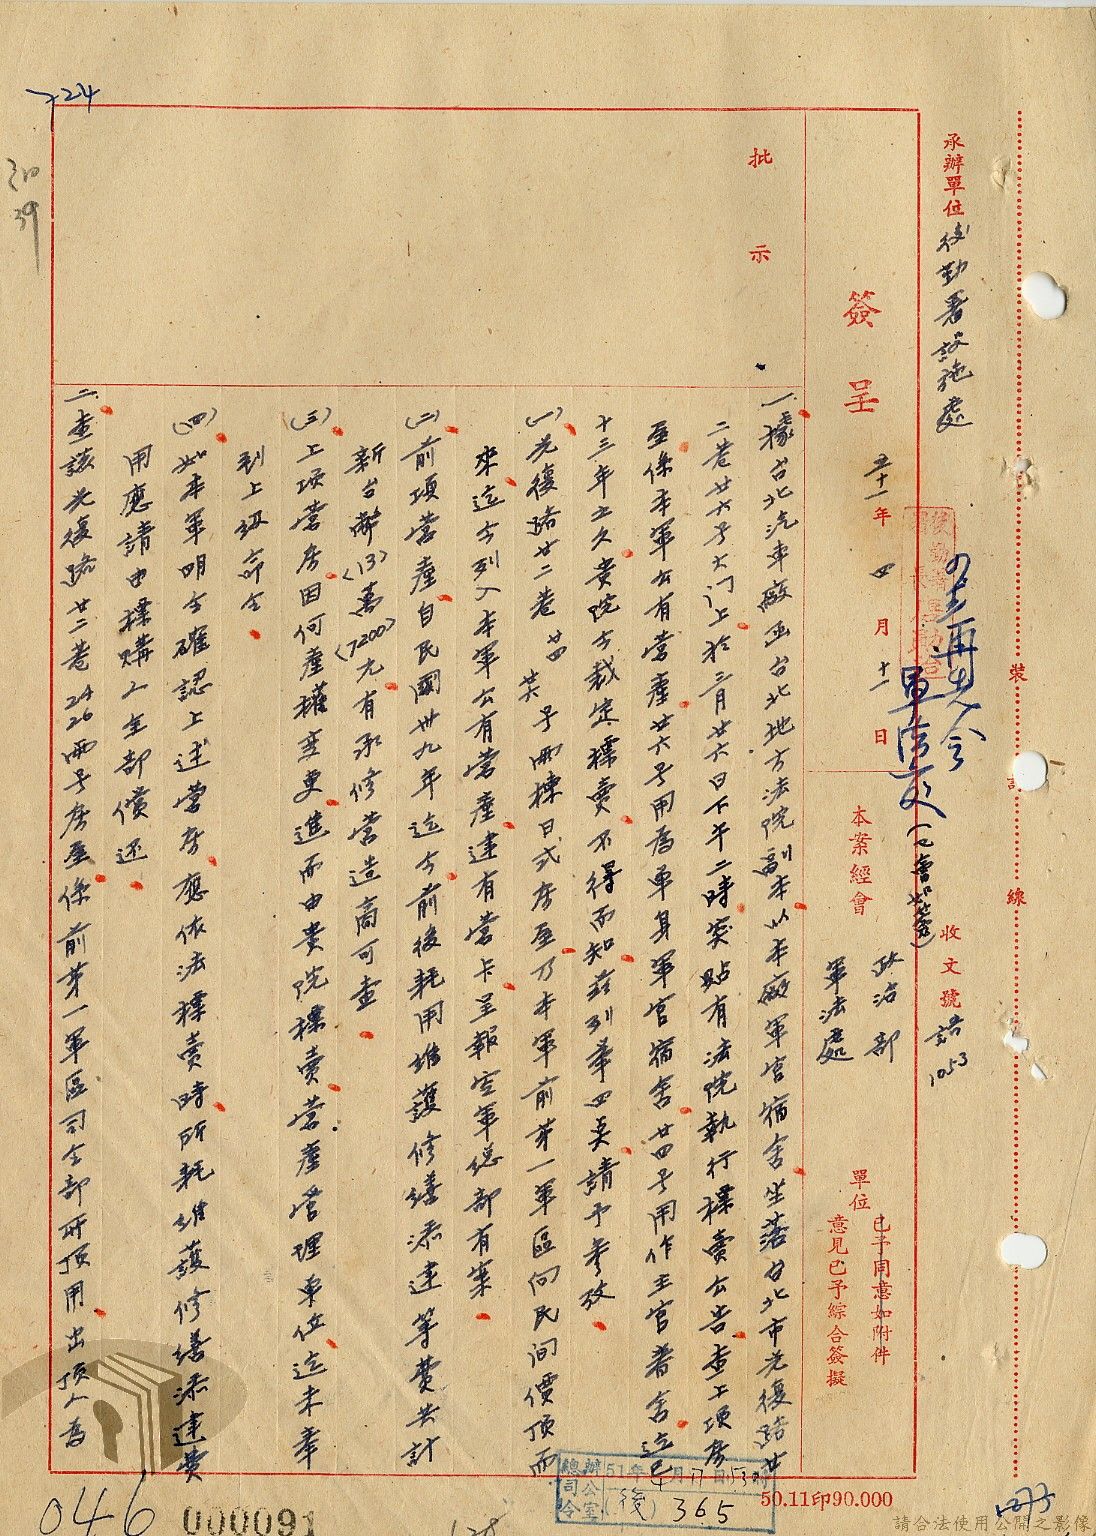 承辦單位 後勤署設施處
簽呈
五十一年四月十一日
本案經會
政治部
軍法處
單位
已予同意如附件
意見已予綜合簽擬
收文號
1053
批示
裝
訂
線
一、據台北汽車廠函台北地方法院副本以本廠軍官宿舍坐落台北市光復路廿
二巷廿六号大门上於三月廿六日下午二時突貼有法院執行標賣公告查上項房
屋係本軍公有營產廿六号用為單身軍官宿舍廿四号用作主官眷舍迄已
十三年之久貴院方裁定標賣不得而知茲列舉四点請予參攷
(一)光復路廿二巷廿四廿六号兩棟日式房屋乃本軍前第一軍區向民间價頂而
來迄今列入本軍公有營產建有營卡呈報空軍總部有案
(二)前項營產自民國卅九年迄今前後耗用維護修繕添建等費共計
新台幣(13)萬(7200)元有承修營造商可查
(三)上項營房因何產權变更進而由貴院標賣營產管理单位迄未奉
到上级命令
(四)如本軍明令確認上述營房應依法標賣時所耗維護修繕添建費
用應請由標購人全部償还
二、查該光復路廿二巷24 26兩号房屋係前第一軍區司令部所頂用出頂人為
總司令
辦公室
51年4月17日
(後)365
50.11印90.000
046
000091
724
39
請合法使用公開之影像